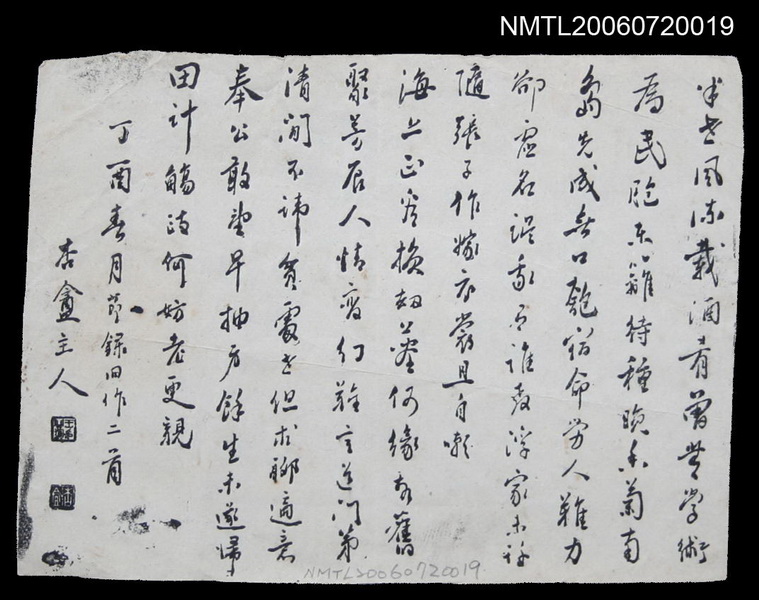 NMTL20060720019
半世風流載酒肴曾無學術
為民胞東籬待種晚香菊南
島先成無口匏宿命勞人難力
卻虛名誤我有誰教浮家未許
隨張子作嫁衣裳且自嘲
海上正看換劫公何緣舊
聚首居人情變幻難言道門第
清閒不諱貧處世但求聊適意
奉公敢望早抽身餘生未遂歸
田計觴詠何妨老更親
丁酉春月節錄旧作二首
杏盦主人
NMTL20060720019